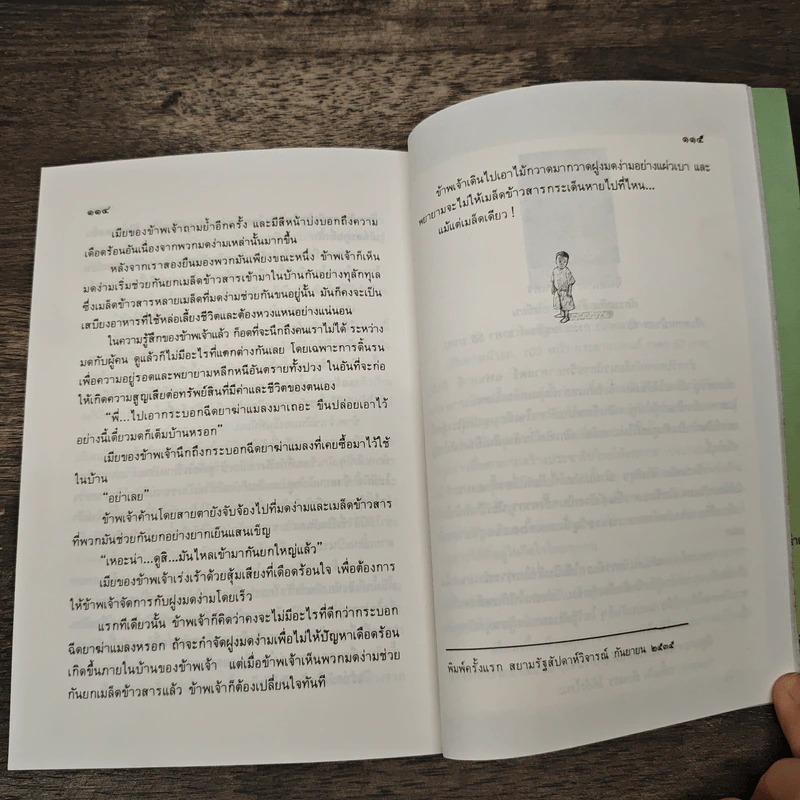 ๑๑๔
เมียของข้าพเจ้าถามย้ำอีกครั้ง และมีสีหน้าบ่งบอกถึงความ
เดือดร้อนอันเนื่องจากพวกมดง่ามเหล่านั้นมากขึ้น
หลังจากเราสองยืนมองพวกมันเพียงขณะหนึ่ง ข้าพเจ้าก็เห็น
มดง่ามเริ่มช่วยกันยกเมล็ดข้าวสารเข้ามาในบ้านกันอย่างทุลักทุเล
ซึ่งเมล็ดข้าวสารหลายเมล็ดที่มดง่ามช่วยกันขนอยู่นั้น มันก็คงจะเป็น
เสบียงอาหารที่ใช้หล่อเลี้ยงชีวิตและต้องหวงแหนอย่างแน่นอน
ในความรู้สึกของข้าพเจ้าแล้ว ก็อดที่จะนึกถึงคนเราไม่ได้ ระหว่าง
มดกับผู้คน ดูแล้วก็ไม่มีอะไรที่แตกต่างกันเลย โดยเฉพาะการดิ้นรน
เพื่อความอยู่รอดและพยายามหลีกหนีอันตรายทั้งปวง ในอันที่จะก่อ
ให้เกิดความสูญเสียต่อทรัพย์สินที่มีค่าและชีวิตของตนเอง
“พี่...ไปเอากระบอกฉีดยาฆ่าแมลงมาเถอะ ขืนปล่อยเอาไว้
อย่างนี้เดี๋ยวมดก็เต็มบ้านหรอก”
เมียของข้าพเจ้านึกถึงกระบอกฉีดยาฆ่าแมลงที่เคยซื้อมาไว้ใช้
ในบ้าน
“อย่าเลย”
ข้าพเจ้าค้านโดยสายตายังจับจ้องไปที่มดง่ามและเมล็ดข้าวสาร
ที่พวกมันช่วยกันยกอย่างยากเย็นแสนเข็ญ
“เหอะน่า...ดูสิ...มันไหลเข้ามากันยกใหญ่แล้ว”
เมียของข้าพเจ้าเร่งเร้าด้วยสุ้มเสียงที่เดือดร้อนใจ เพื่อต้องการ
ให้ข้าพเจ้าจัดการกับฝูงมดง่ามโดยเร็ว
แรกทีเดียวนั้น ข้าพเจ้าก็คิดว่าคงจะไม่มีอะไรที่ดีกว่ากระบอก
ฉีดยาฆ่าแมลงหรอก ถ้าจะกำจัดฝูงมดง่ามเพื่อไม่ให้ปัญหาเดือดร้อน
เกิดขึ้นภายในบ้านของข้าพเจ้า แต่เมื่อข้าพเจ้าเห็นพวกมดง่ามช่วย
กันยกเมล็ดข้าวสารแล้ว ข้าพเจ้าก็ต้องเปลี่ยนใจทันที
๑๑๕
ข้าพเจ้าเดินไปเอาไม้กวาดมากวาดฝูงมดง่ามอย่างแผ่วเบา และ
พยายามจะไม่ให้เมล็ดข้าวสารกระเด็นหายไปที่ไหน...
แม้แต่เมล็ดเดียว !
พิมพ์ครั้งแรก สยามรัฐสัปดาห์วิจารณ์ กันยายน ๒๕๓๕